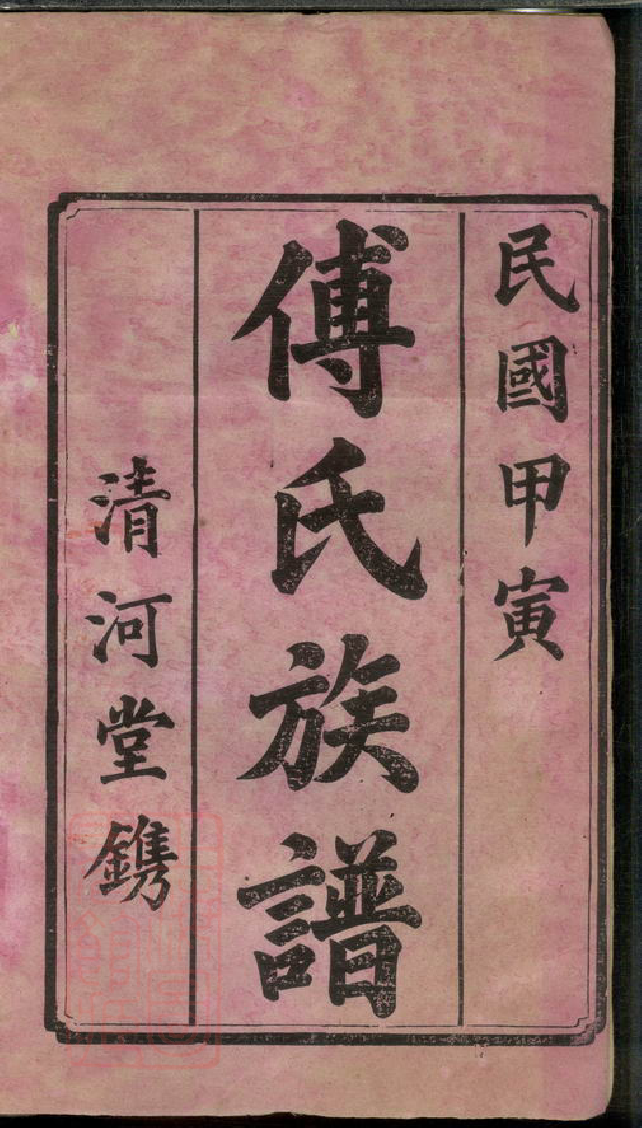 民國甲寅
傅氏族譜
清河堂鐫